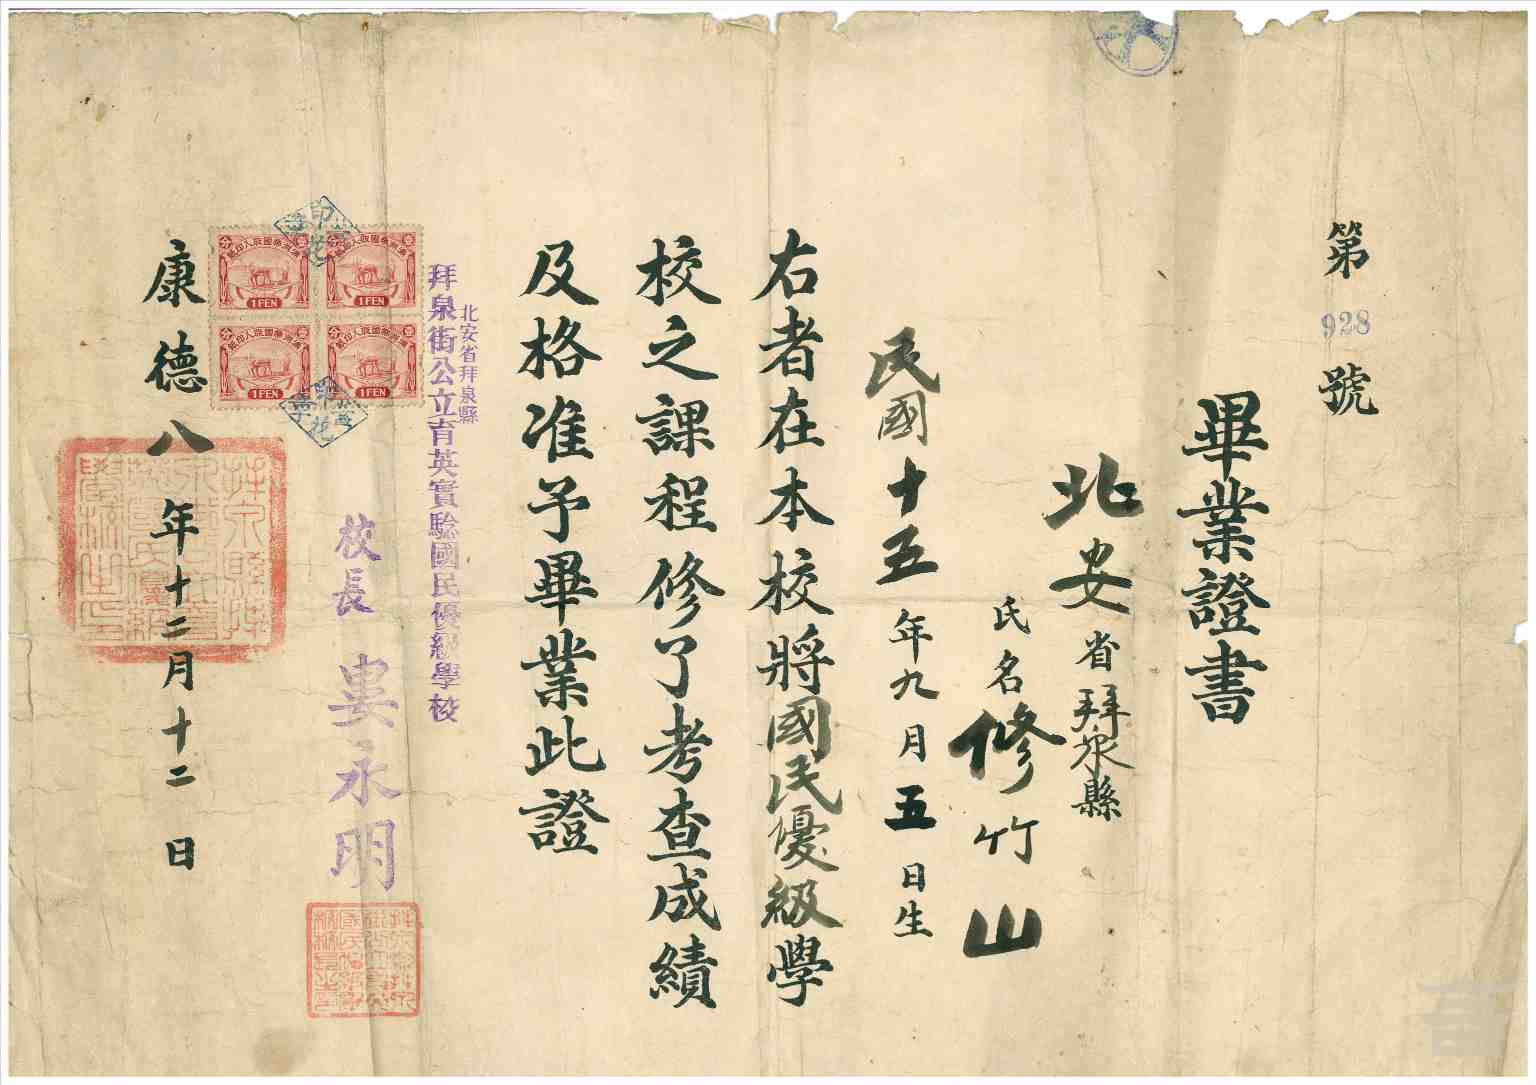 第928號
畢業證書
北安省拜泉縣
氏名修竹山
民國十五年九月五日生
右者在本校將國民優級學
校之課程修了考查成績
及格准予畢業此證
北安省拜泉縣
拜泉街公立育英實驗國民優級學校
校長 婁永明
1 FEN
1 FEN
1 FEN
1 FEN
康德八年十二月十二日